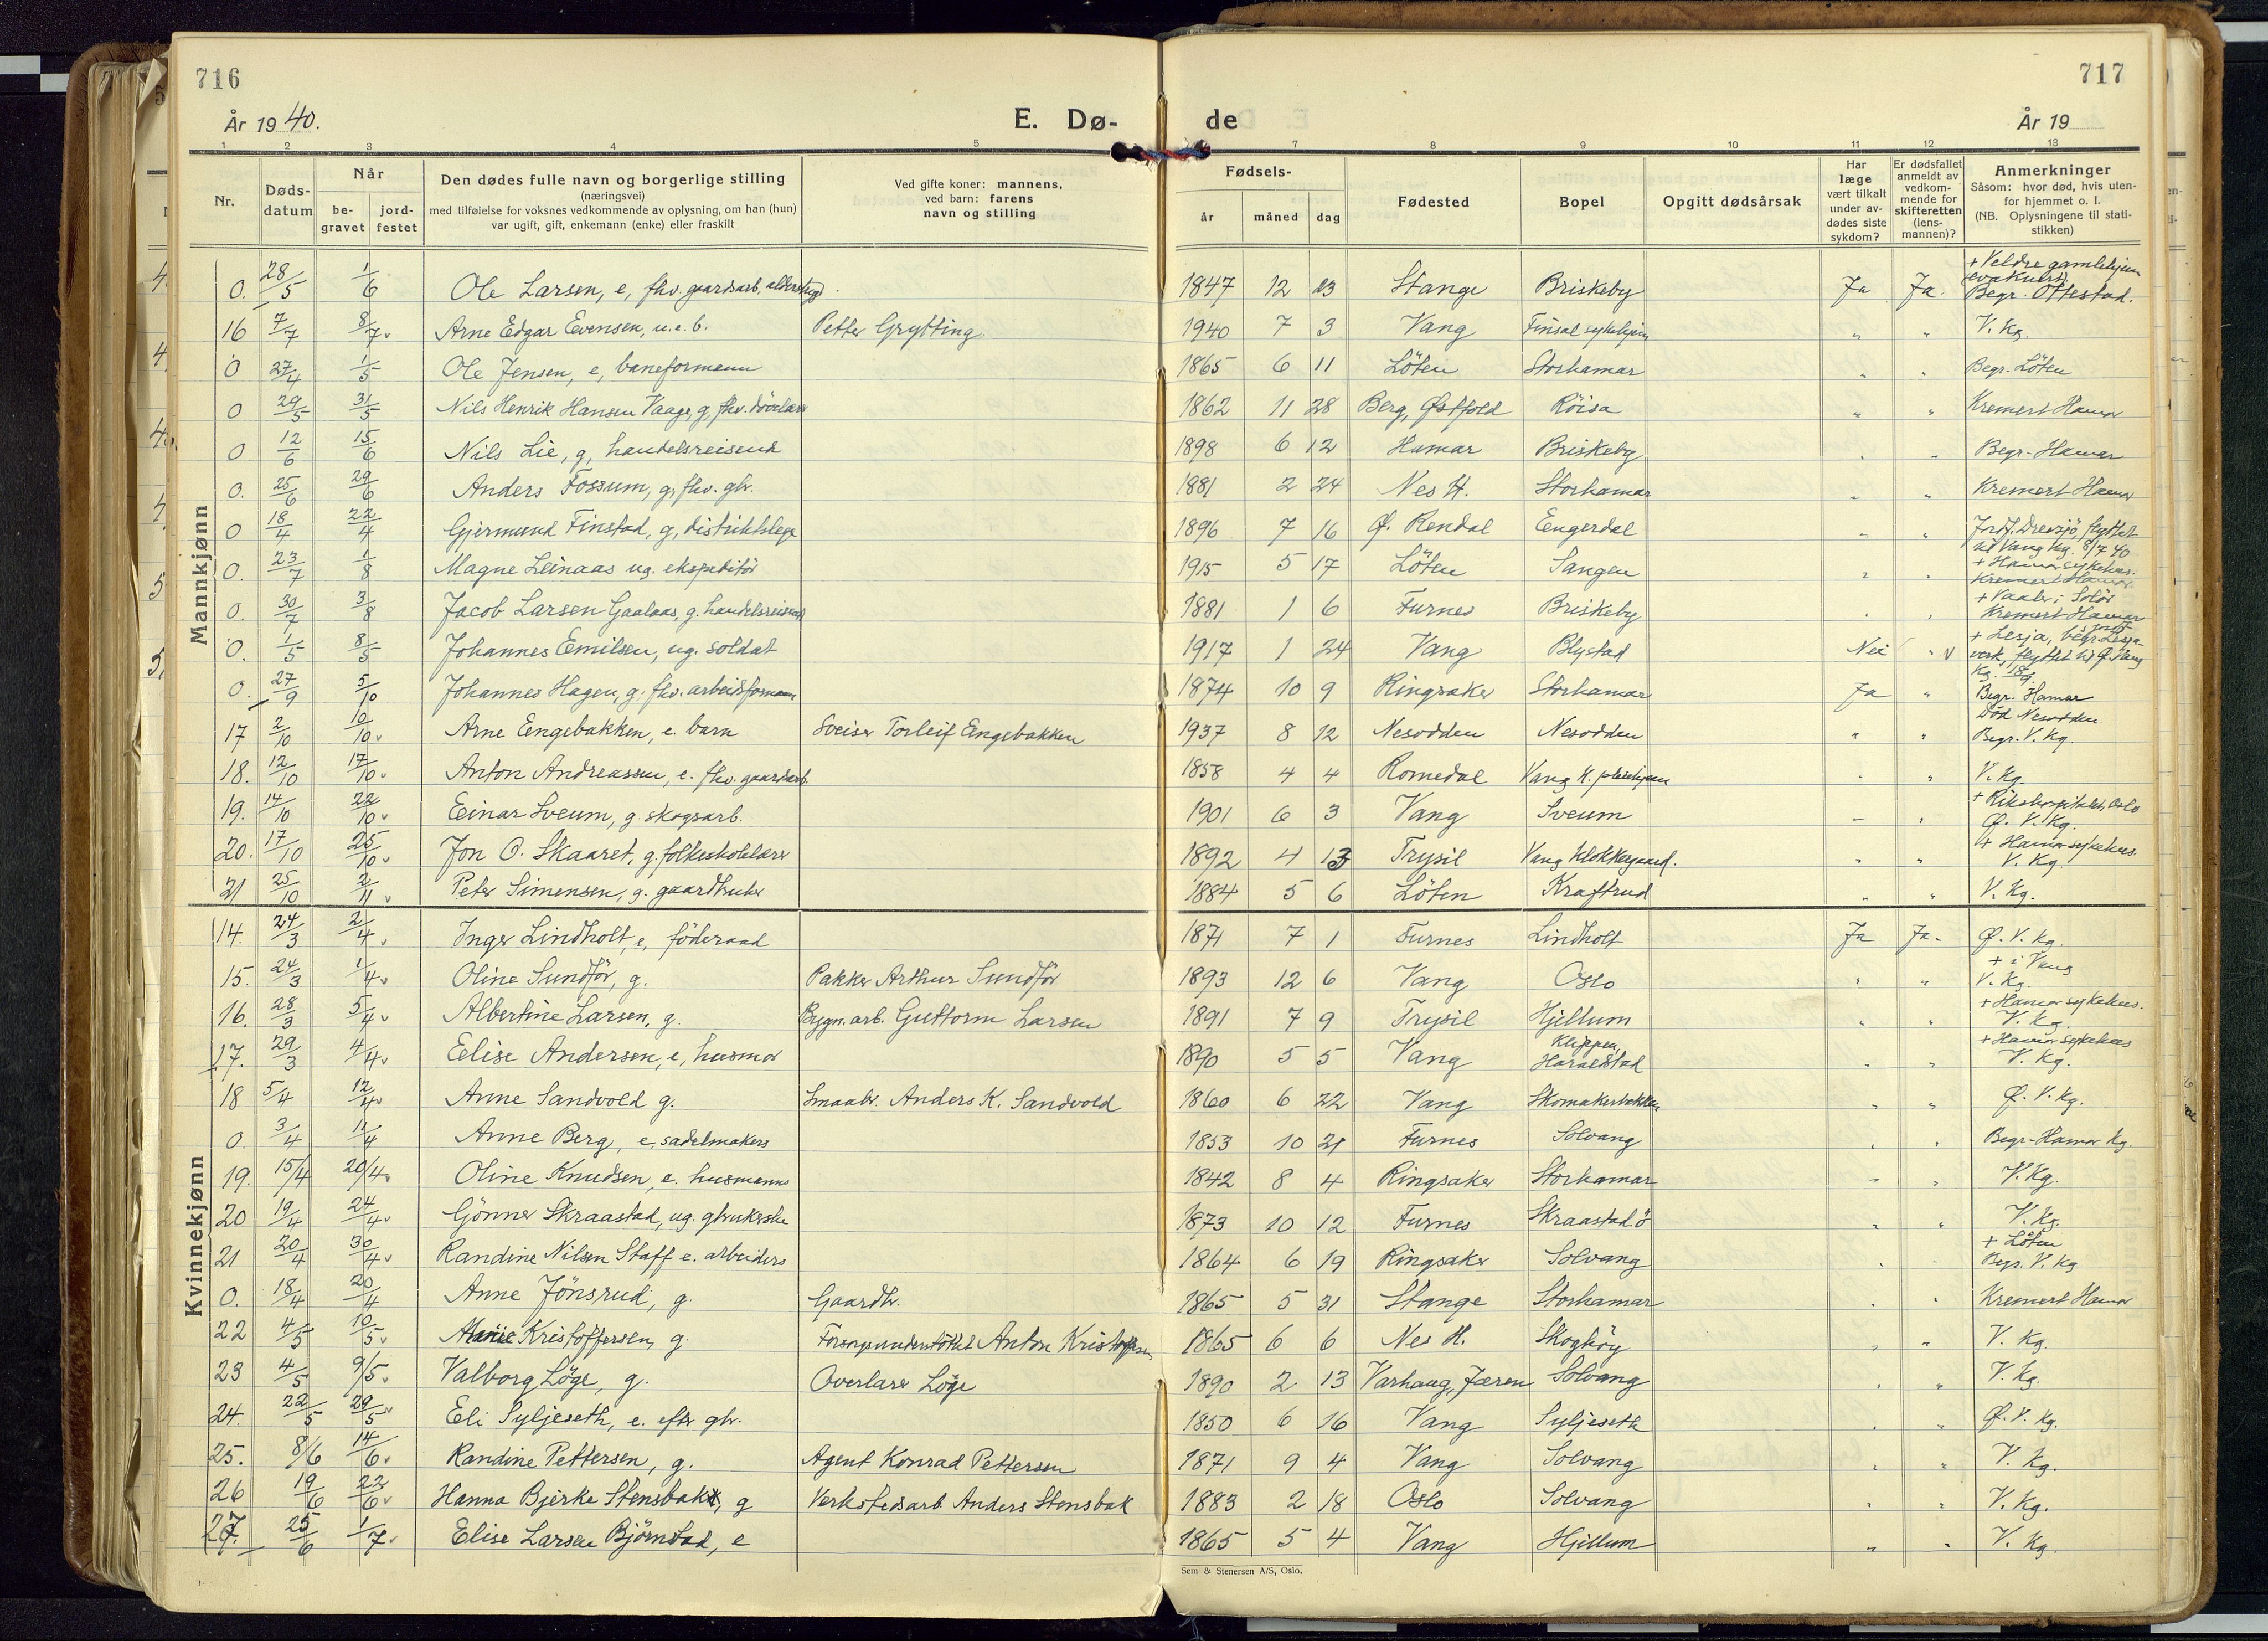 716
717
År 1940.
E. Dø-
de
År 19
1 2 3 4 5 7 8 9 10 11 12 13
Nr. Døds-datum Når be-gravet jord-festet Den dødes fulle navn og borgerlige stilling (næringsvei) med tilføielse for voksnes vedkommende av oplysning, om han (hun) var ugift, gift, enkemann (enke) eller fraskilt Ved gifte koner: mannens, ved barn: farens navn og stilling Fødsels- år måned dag Fødested Bopel Opgitt dødsårsak Har læge vært tilkalt under av-dødes siste sykdom? Er dødsfallet anmeldt av vedkom-mende for skifteretten (lens-mannen)? Anmerkninger Såsom: hvor død, hvis uten-for hjemmet o. l. (NB. Oplysningene til stati-stikken)
Mannkjønn
0. 28/5 1/6 Ole Larsen, e, fhv. gaardsarb, alderstrygd 1847 12 23 Stange Briskeby Ja Ja. + Veldre gamlehjem (evakuert) Begr. Ottestad.
16 7/7 8/7 Arne Edgar Evensen, u.e.b. Petter Grytting 1940 7 3 Vang Finsal sykehjem " " V. Kg.
0 27/4 1/5 Ole Jensen, e, baneformann 1865 6 11 Löten Storhamar " " Begr. Löten
0 29/5 31/5 Nils Henrik Hansen Vaage, g, fhv. dövelærer 1862 11 28 Berg, Østfold Röisa " " Kremert Hamar
0 12/6 15/6 Nils Lie, g, handelsreisend 1898 6 12 Hamar Briskeby " " Begr. Hamar
0. 25/6 29/6 Anders Fossum, g, fhv. gbr. 1881 2 24 Nes H. Storhamar " " Kremert Hamar
0 18/4 22/4 Gjermund Finstad, g, distriktslege 1896 7 16 Ø. Rendal Engerdal " " Jordf. Drevsjö, flyttet til Vang Kg. 8/7 40
0. 23/7 1/8 Magne Leinaas ug. ekspeditör 1915 5 17 Löten Sangen " " + Hamar sykehus. Kremert Hamar
0. 30/7 3/8 Jacob Larsen Gaalaas, g. handelsreisend 1881 1 6 Furnes Briskeby " " + Vaaler i Solör Kremert Hamar
0. 1/5 8/5 Johannes Emilsen, ug. soldat 1917 1 24 Vang Blystad Nei " v + Lesja, begr. Lesja verk, flyttet til Ø. Vang Kg.
0. 27/9 5/10 Johannes Hagen, g. fhv. arbeidsformann 1874 10 9 Ringsaker Storhamar Ja " Begr. Hamar
17 2/10 10/10 Arne Engebakken, e. barn Sveiser Torleif Engebakken 1937 8 12 Nesodden Nesodden " " Död Nesodden Begr. V. Kg.
18. 12/10 17/10 Anton Andreassen, e. fhv. gaardsarb. 1858 4 4 Romedal Vang K. pleiehjem " " V. Kg.
19. 14/10 22/10 Einar Sveum, g. skogsarb. 1901 6 3 Vang Sveum " " + Rikshospitalet, Oslo Ø. V. Kg.
20. 17/10 25/10 Jon O. Skaaret, g. folkeskolelærer 1892 4 13 Trysil Vang Klokkergaard. " " + Hamar sykehus. V. Kg.
21 25/10 2/11 Peter Simensen, g. gaardbruker 1884 5 6 Löten Kraftrud " " V. Kg.
Kvinnekjønn
14. 24/3 2/4 Inger Lindholt, e, föderaad 1871 7 1 Furnes Lindholt Ja Ja. Ø. V. Kg.
15. 24/3 1/4 Oline Sundför, g. Pakker Arthur Sundför 1893 12 6 Vang Oslo " " + i Vang V. Kg.
16. 28/3 5/4 Albertine Larsen, g. Bygn. arb. Guttorm Larsen 1891 7 9 Trysil Hjellum " " + Hamar sykehus. V. Kg.
17. 29/3 4/4 Elise Andersen, e, husmor 1890 5 5 Vang Klippen, Haraldstad " " + Hamar sykehus V. Kg.
18 5/4 12/4 Anne Sandvold g. Smaabr. Anders K. Sandvold 1860 6 22 Vang Skomakerbakken " " Ø. V. Kg.
0. 3/4 11/4 Anne Berg, e, sadelmakers 1853 10 21 Furnes Solvang " " Begr. Hamar Kg.
19. 15/4 20/4 Oline Knudsen, e. husmanns 1842 8 4 Ringsaker Storhamar " " V. Kg.
20 19/4 24/4 Gönner Skraastad, ug. gbrukerske 1873 10 12 Furnes Skraastad ö " " V. Kg.
21 20/4 30/4 Randine Nilsen Staff e. arbeiders 1864 6 19 Ringsaker Solvang " " + Löten Begr. V. Kg
0. 18/4 20/4 Anne Jönsrud, g. Gaardbr. 1865 5 31 Stange Storhamar " " Kremert Hamar
22 4/5 10/5 Marie Kristoffersen, g. Forsorgsunderstöttet Anton Kristoffersen 1865 6 6 Nes H. Skoghöy " " V. Kg.
23 4/5 9/5 Valborg Löge, g. Overlærer Löge 1890 2 13 Varhaug, Jæren Solvang " " V. Kg.
24. 22/5 29/5 Eli Syljeseth, e. efter gbr. 1850 6 16 Vang Syljeseth " " Ø. V. Kg.
25. 8/6 14/6 Randine Pettersen, g. Agent Konrad Pettersen 1871 9 4 Vang Solvang " " V. Kg.
26 19/6 22/6 Hanna Bjerke Stensbak, g Verkstedsarb. Anders Stensbak 1883 2 18 Oslo Solvang " " V. Kg.
27. 25/6 1/7 Elise Larsen Björnstad, e 1865 5 4 Vang Hjellum " " V. Kg.
Sem & Stenersen A/S, Oslo.